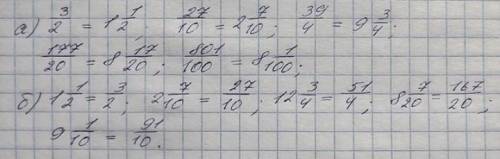 а) 3/2 = 1 1/2; 27/10 = 2 7/10; 39/4 = 9 3/4;
177/20 = 8 17/20; 801/100 = 8 1/100;
б) 1 1/2 = 3/2; 2 7/10 = 27/10; 12 3/4 = 51/4; 8 7/20 = 167/20;
9 1/10 = 91/10.